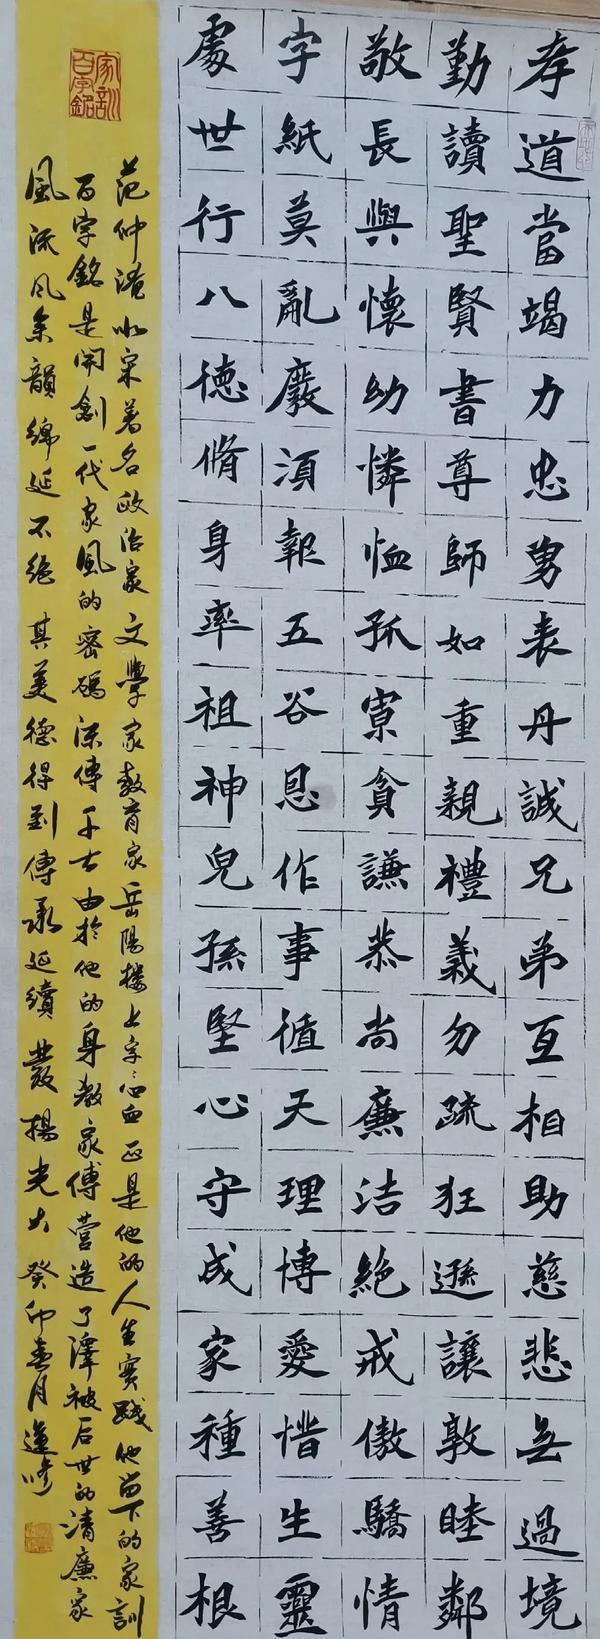 孝道當竭力忠勇表丹誠兄弟互相助慈悲無過境
勤讀聖賢書尊師如重親禮義勿疏狂遜讓敦睦鄰
敬長與懷幼憐恤孤寡貧謙恭尚廉洁絶戒傲驕情
字紙莫亂廢須報五谷恩作事循天理博愛惜生靈
處世行八德脩身率祖神兒孫堅心守成家種善根
家訓百字銘
范仲淹北宋著名政治家文學家教育家岳陽楼上字字心血正是他的人生實踐他留下的家訓
百字銘是開創一代家風的密碼流傳千古由於他的身教家傅營造了澤被后世的清廉家
風流风余韻绵延不絶其美德得到傳承延續發揚光大癸卯春月蓮修